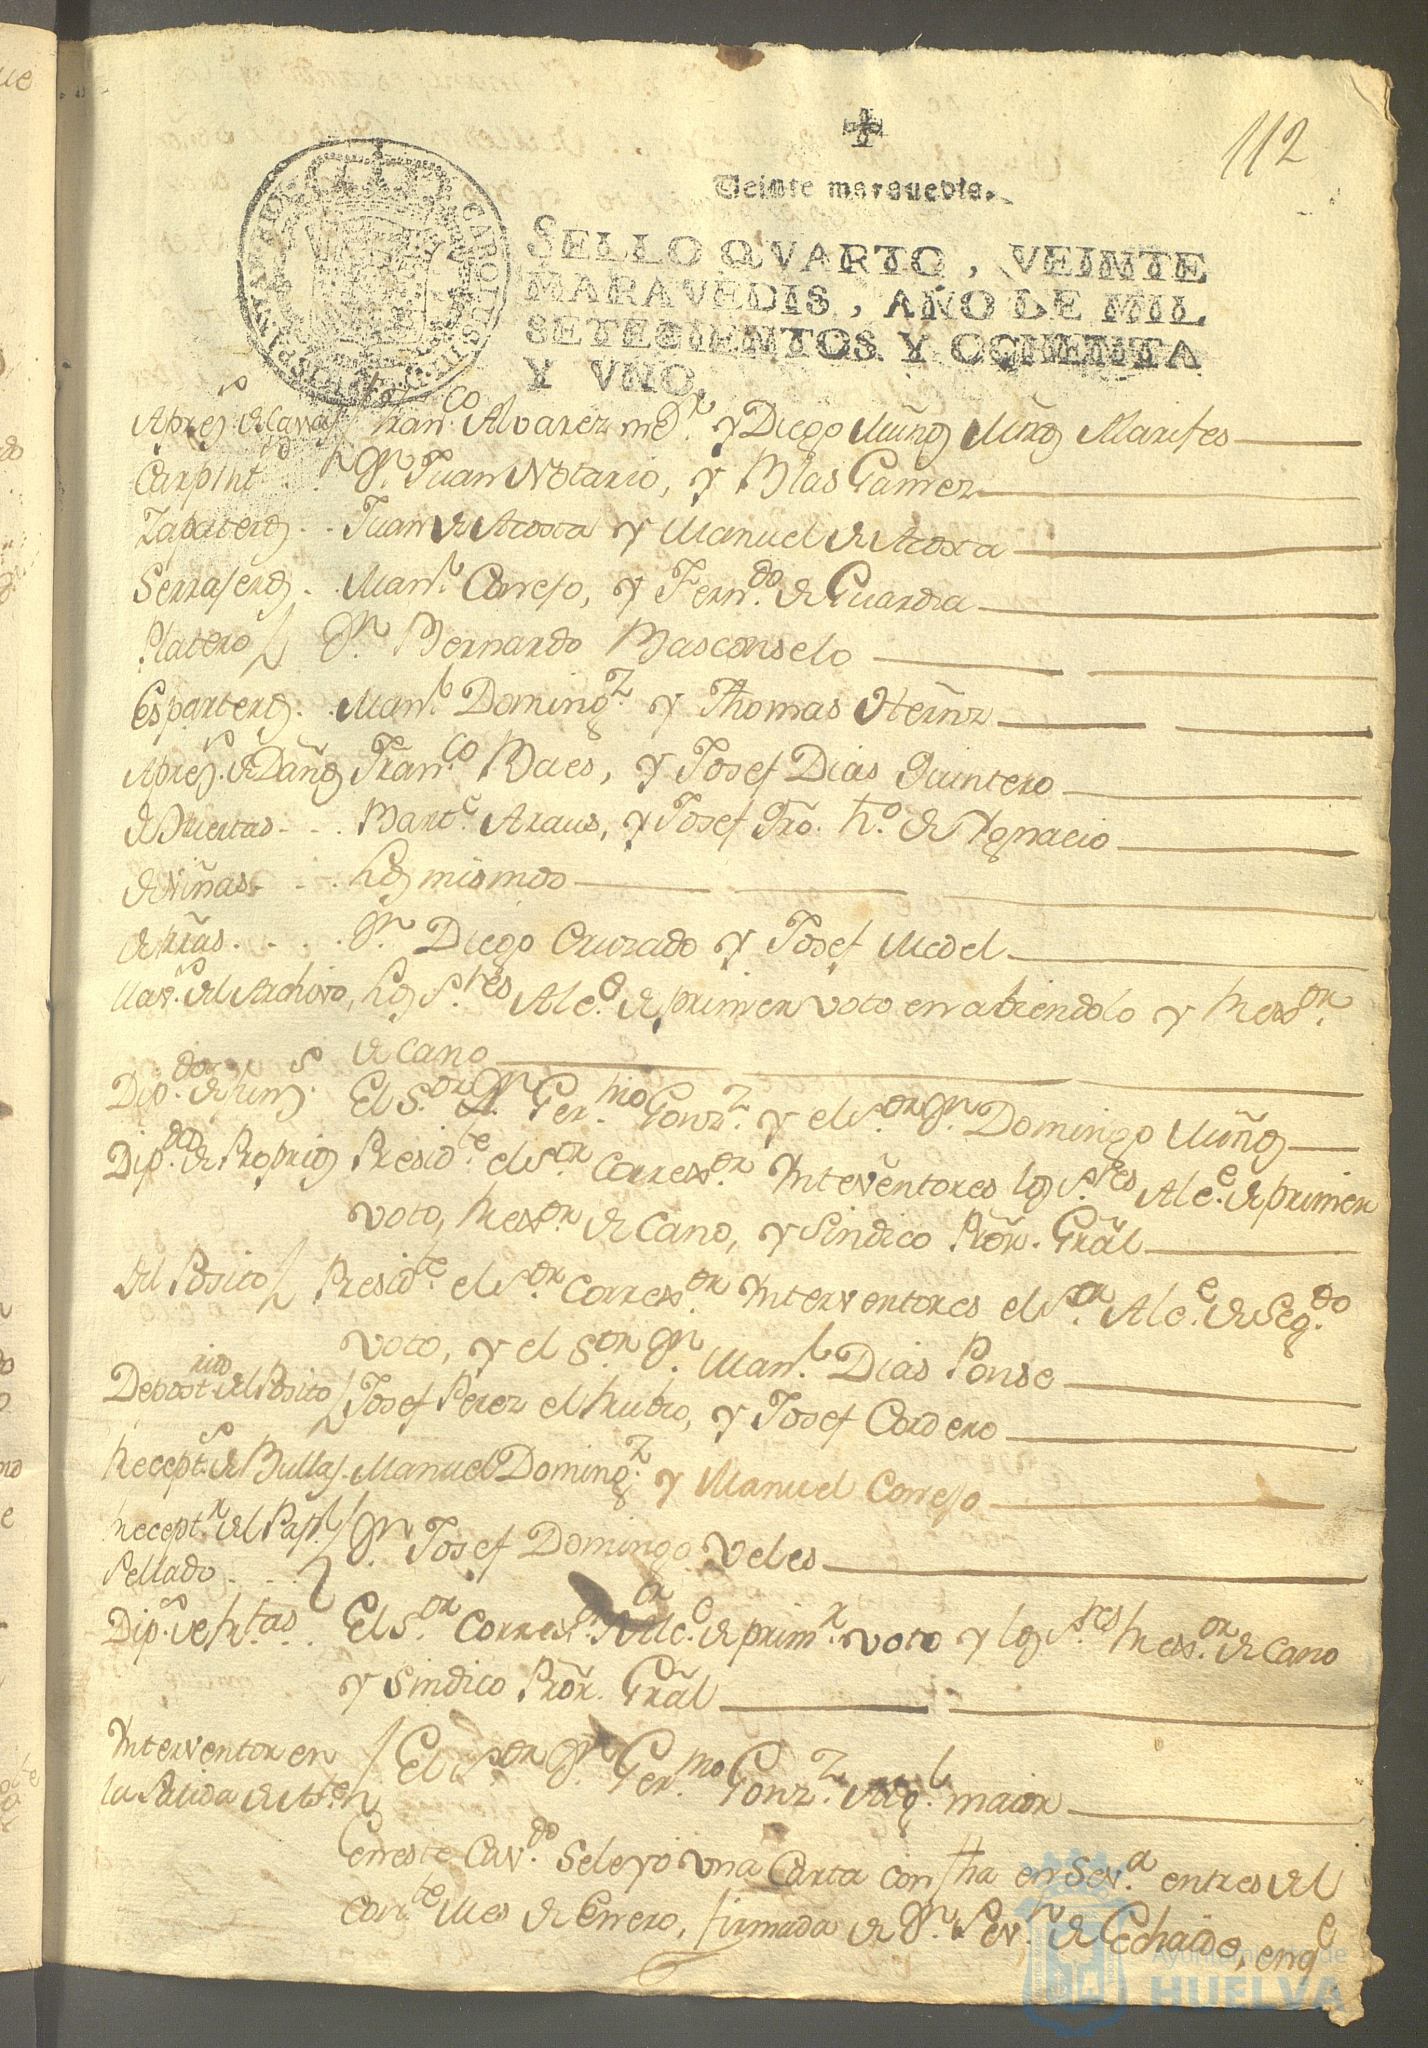 112
Veinte maravedis.
SELLO QVARTO, VEINTE
MARAVEDIS, AÑO DE MIL
SETECIENTOS Y OCHENTA
Y VNO.
Apre.s de Casas Fran.co Alvarez y Diego Muñoz Alarifes
Carpint.os D.n Juan Notario, y Blas Gamez
Zapateros . . Juan de Acosta y Manuel de Acosta
Serrajeros . . Man.l Correjo, y Fern.do de Guardia
Platero D.n Bernardo Basconselo
Esparteros . . Man.l Doming.z y Thomas Hernz
Apre.s de Daños Fran.co Baes, y Josef Dias Quintero
de Huertas . . . Bart.e Araus, y Josef Fro. h.o de Ygnacio
de viñas . . . los mismos
de hzas . . . . D.n Diego Cruzado y Josef Medel
llav.s del Archivo, los S.res Alc.e de primer voto en habiendolo y Rex.or
de cano
Dip.dos de El S.or D.n Ger.mo Gonz.z y el S.or D.n Domingo Muñoz
Dip.dos de Proprios Presid.te el S.or Correx.or Interventores los S.res Alc.e de primer
voto, Rex.or de Cano, y Sindico Prõr. Grãl
del Posito Presid.te el S.or Correx.or Interventores el S.or Alc.e de Seg.do
voto, y el S.or D.n Man.l Dias Ponse
Deposit.rios del Posito Josef Perez el Rubio, y Josef Cordero
Recept.s de Bullas . Manuel Doming.z y Manuel Correjo
Recept.r del Pap.l D.n Josef Domingo Veles
Sellado . . .
Dip.s de R.tas . . El S.or Correx.or Alc.e de prim.r voto y los S.res Rex.or de Cano
y Sindico Prõr. Grãl
Interventor en El S.or D.n Ger.mo Gonz.z Alg.l maior
la Salida de
En este Cav.do se leyo una Carta con fha en Sev.a en tres del
corr.te Mes de Enero, firmada de D.n de Echaide, en q.e
Ayuntamiento de
HUELVA